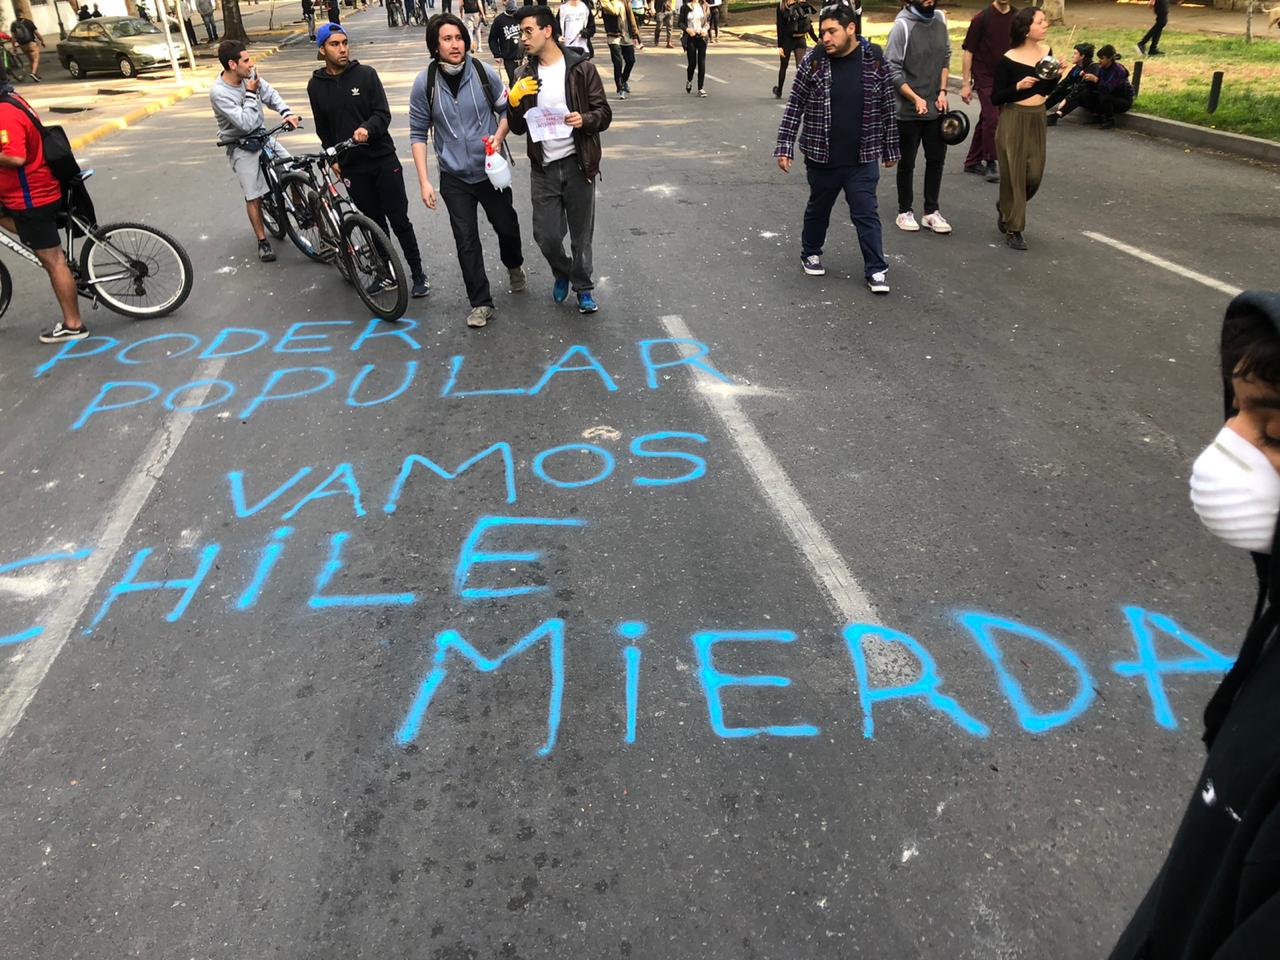 PODER
POPULAR
VAMOS
CHiLE
MiERDA